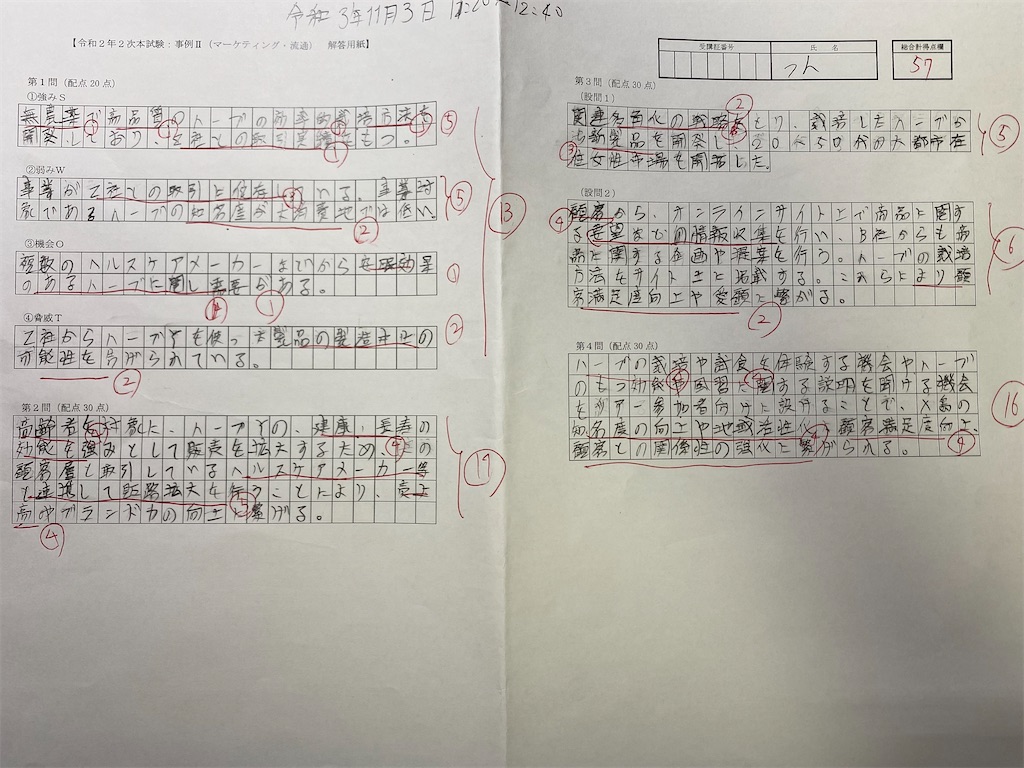 令和3年11月3日 11:20〜12:40
【令和２年２次本試験：事例Ⅱ（マーケティング・流通） 解答用紙】
第１問（配点20点）
①強みＳ
無農薬で高品質のハーブの効率的栽培方法を
開発しており、Z社との取引実績をもつ。
⑤
②弱みＷ
事業がZ社との取引に依存している。事業対
象であるハーブの知名度が大消費地では低い
⑤
③機会Ｏ
複数のヘルスケアメーカーなどから安眠効果
のあるハーブに関し需要がある。
①
④脅威Ｔ
Z社からハーブYを使った製品の製造中止の
可能性を告げられている。
②
⑬
第２問（配点30点）
高齢者を対象に、ハーブYの、健康、長寿の
効能を強みとして販売を拡大するため、
顧客層と取引しているヘルスケアメーカー等
と連携して販路拡大を行うことにより、売上
高やブランド力の向上に繋げる。
受講証番号
氏 名
つん
総合計得点欄
57
第３問（配点30点）
（設問１）
関連多角化の戦略をとり、栽培したハーブか
ら新製品を開発し、20〜50代の大都市在
住女性市場を開拓した。
⑤
（設問２）
顧客から、オンラインサイト上で商品に関す
る要望などの情報収集を行い、B社からも商
品に関する企画や提案を行う。ハーブの栽培
方法をサイト上に掲載する。これらにより顧
客満足度向上や愛顧に繋がる。
⑥
第４問（配点30点）
ハーブの栽培や試食を体験する機会やハーブ
のもつ効能や風習に関する説明を聞ける機会
をツアー参加者向けに設けることで、X島の
知名度の向上や地域活性化、顧客満足度向上、
顧客との関係性の強化に繋がられる。
⑯